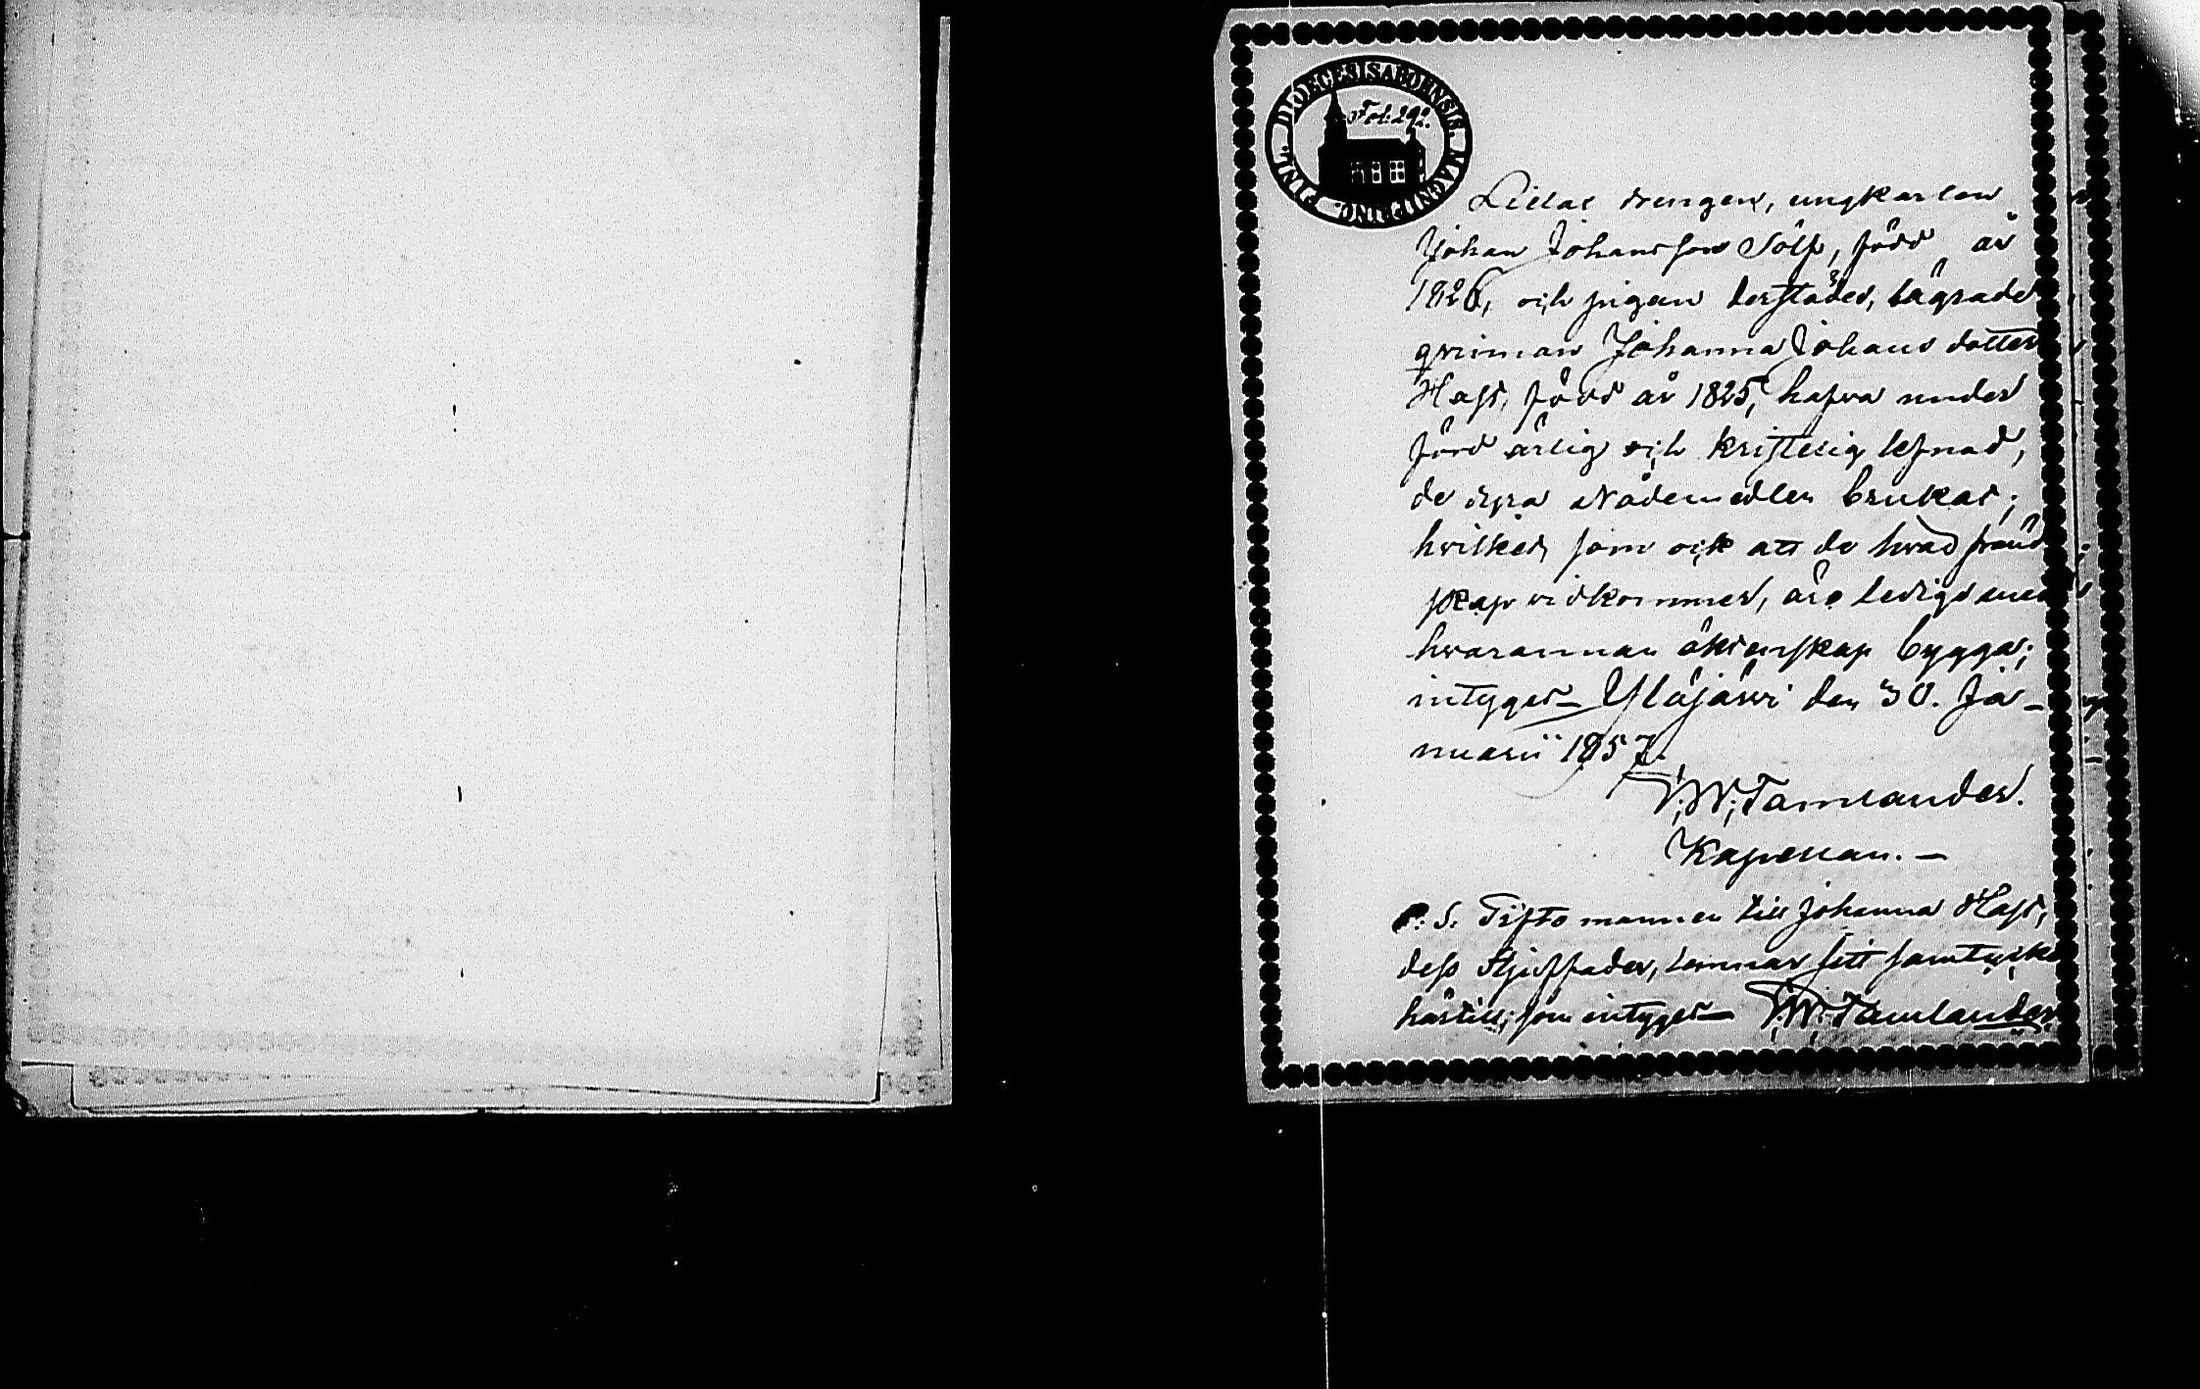 DIOECESIS ABOENSIS. MAGNI PRINC. FINL.
Fol: 292.
Lillas drengen, ungkarlen
Johan Johansson Sölf, född år
1826, och pigan derstädes, lägrade
qvinnan Johanna Johans dotter
Hast, född år 1825, hafva under
förd ärlig och kristelig lefnad,
de dyra Nådemedlen brukat;
hvilket, som ock att de hvad fränd
skap vidkommer, äro lediga med
hvarannan äktenskap bygga;
intygar Ylöjärvi den 30. Ja-
nuarii 1857.
W. Tamlander.
Kapellan. —
P. S. Gifto mannen till Johanna Hast,
dess Stjuffader, lemnar sitt samtycke
härtill; som intygar W. Tamlander